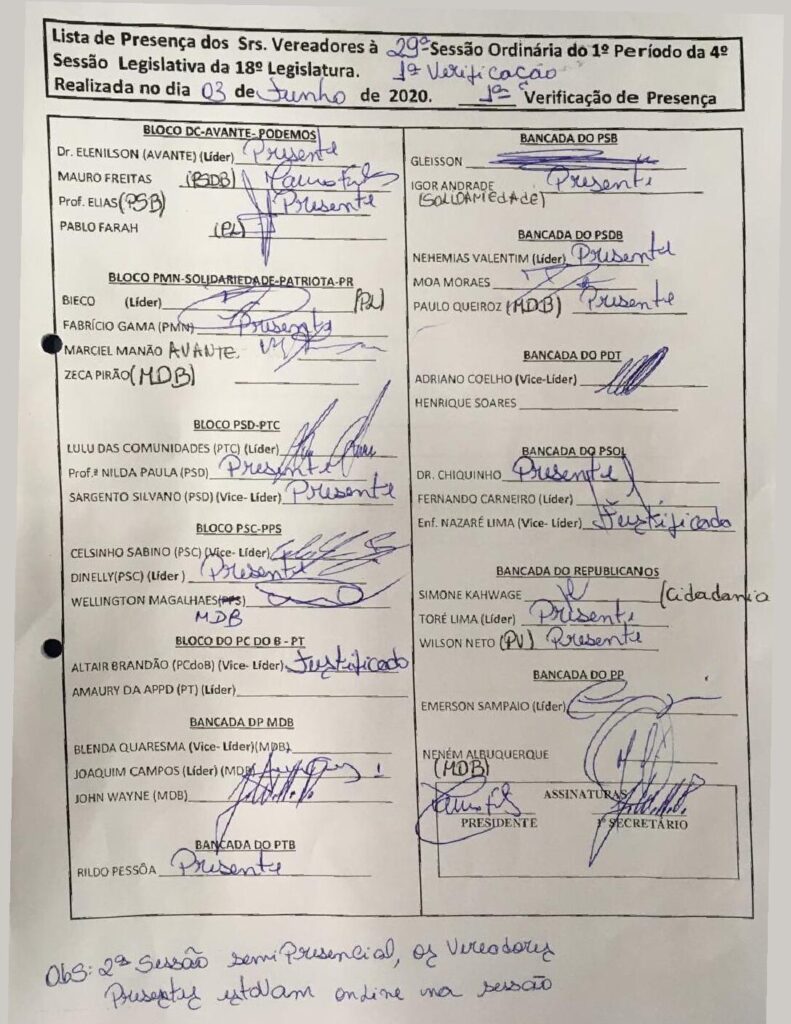 Lista de Presença dos Srs. Vereadores à 29ª Sessão Ordinária do 1º Período da 4º
Sessão Legislativa da 18º Legislatura. 1ª Verificação
Realizada no dia 03 de Junho de 2020. 1ª Verificação de Presença
BLOCO DC-AVANTE-PODEMOS
Dr. ELENILSON (AVANTE) (Líder) Presente
MAURO FREITAS (PSDB)
Prof. ELIAS (PSB) Presente
PABLO FARAH (PL)
BLOCO PMN-SOLIDARIEDADE-PATRIOTA-PR
BIECO (Líder) (PL)
FABRÍCIO GAMA (PMN) Presente
MARCIEL MANÃO AVANTE.
ZECA PIRÃO (MDB)
BLOCO PSD-PTC
LULU DAS COMUNIDADES (PTC) (Líder)
Prof.ª NILDA PAULA (PSD) Presente
SARGENTO SILVANO (PSD) (Vice- Líder) Presente
BLOCO PSC-PPS
CELSINHO SABINO (PSC) (Vice- Líder)
DINELLY(PSC) (Líder ) Presente
WELLINGTON MAGALHAES(PPS)
MDB
BLOCO DO PC DO B - PT
ALTAIR BRANDÃO (PCdoB) (Vice- Líder) Justificado
AMAURY DA APPD (PT) (Líder)
BANCADA DP MDB
BLENDA QUARESMA (Vice- Líder)(MDB)
JOAQUIM CAMPOS (Líder) (MDB)
JOHN WAYNE (MDB)
BANCADA DO PTB
RILDO PESSÔA Presente
BANCADA DO PSB
GLEISSON
IGOR ANDRADE Presente
(SOLIDARIEdAdE)
BANCADA DO PSDB
NEHEMIAS VALENTIM (Líder) Presente
MOA MORAES
PAULO QUEIROZ (MDB) Presente
BANCADA DO PDT
ADRIANO COELHO (Vice-Líder)
HENRIQUE SOARES
BANCADA DO PSOL
DR. CHIQUINHO Presente
FERNANDO CARNEIRO (Líder)
Enf. NAZARÉ LIMA (Vice- Líder) Justificado
BANCADA DO REPUBLICANOS
SIMONE KAHWAGE (Cidadania
TORÉ LIMA (Líder) Presente
WILSON NETO (PV) Presente
BANCADA DO PP
EMERSON SAMPAIO (Líder)
NENÉM ALBUQUERQUE
(MDB)
ASSINATURAS
PRESIDENTE 1º SECRETÁRIO
Obs: 2ª Sessão semiPresencial, os Vereadores
Presentes estavam online na sessão